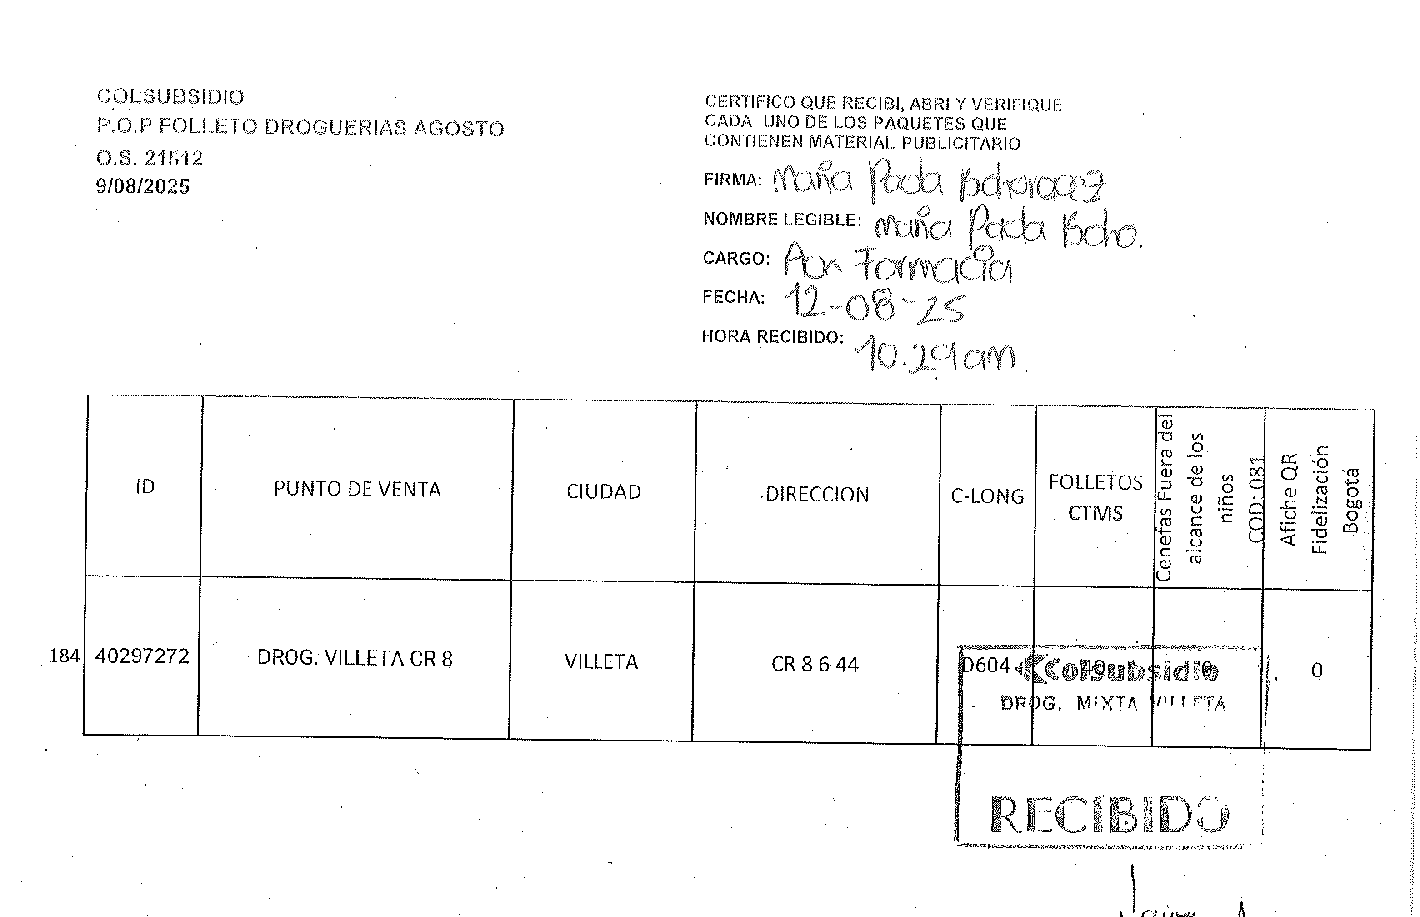 COLSUBSIDIO
P.O.P FOLLETO DROGUERIAS AGOSTO
O.S. 21512
9/08/2025
CERTIFICO QUE RECIBI, ABRI Y VERIFIQUE
CADA UNO DE LOS PAQUETES QUE
CONTIENEN MATERIAL PUBLICITARIO
FIRMA: Maria Paola
NOMBRE LEGIBLE: Maria Paola
CARGO: Aux Farmacia
FECHA: 12-08-25
HORA RECIBIDO: 10:29am
ID
PUNTO DE VENTA
CIUDAD
DIRECCION
C-LONG
FOLLETOS
CTMS
Cenefas Fuera del
alcance de los
niños
COD: 081
Afiche QR
Fidelización
Bogotá
184 40297272 DROG. VILLETA CR 8 VILLETA CR 8 6 44 D604 0
Colsubsidio
DROG. MIXTA VILLETA
RECIBIDO